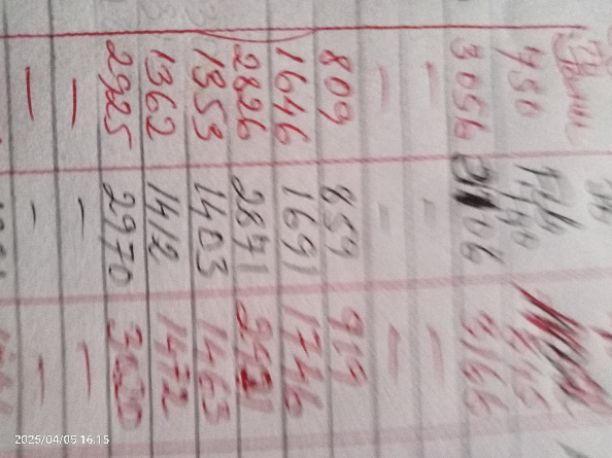 3056 3106 3166
— — —
— — —
809 859 919
1646 1691 1746
2826 2871 2921
1353 1403 1463
1362 1412 1472
2925 2970 3020
— — —
— — —
2025/04/05 16.15